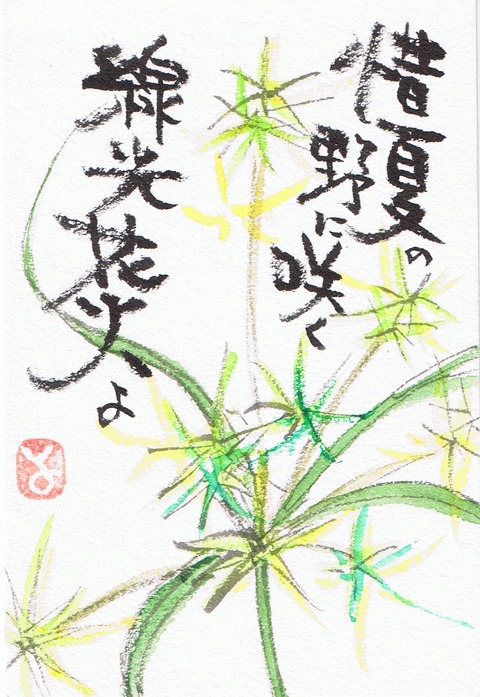 惜夏の
野に咲く
線光花火よ
と